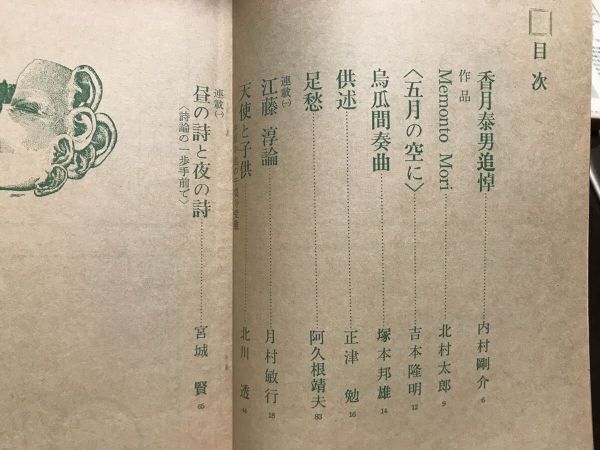 目次
香月泰男追悼 内村剛介 6
作品
Memonto Mori 北村太郎 9
〈五月の空に〉 吉本隆明 12
烏瓜間奏曲 塚本邦雄 14
供述 正津勉 16
足愁 阿久根靖夫 83
連載㈠
江藤淳論 月村敏行 18
天使と子供 北川透 44
連載㈠
昼の詩と夜の詩 宮城賢 65
〈詩論の一歩手前で〉